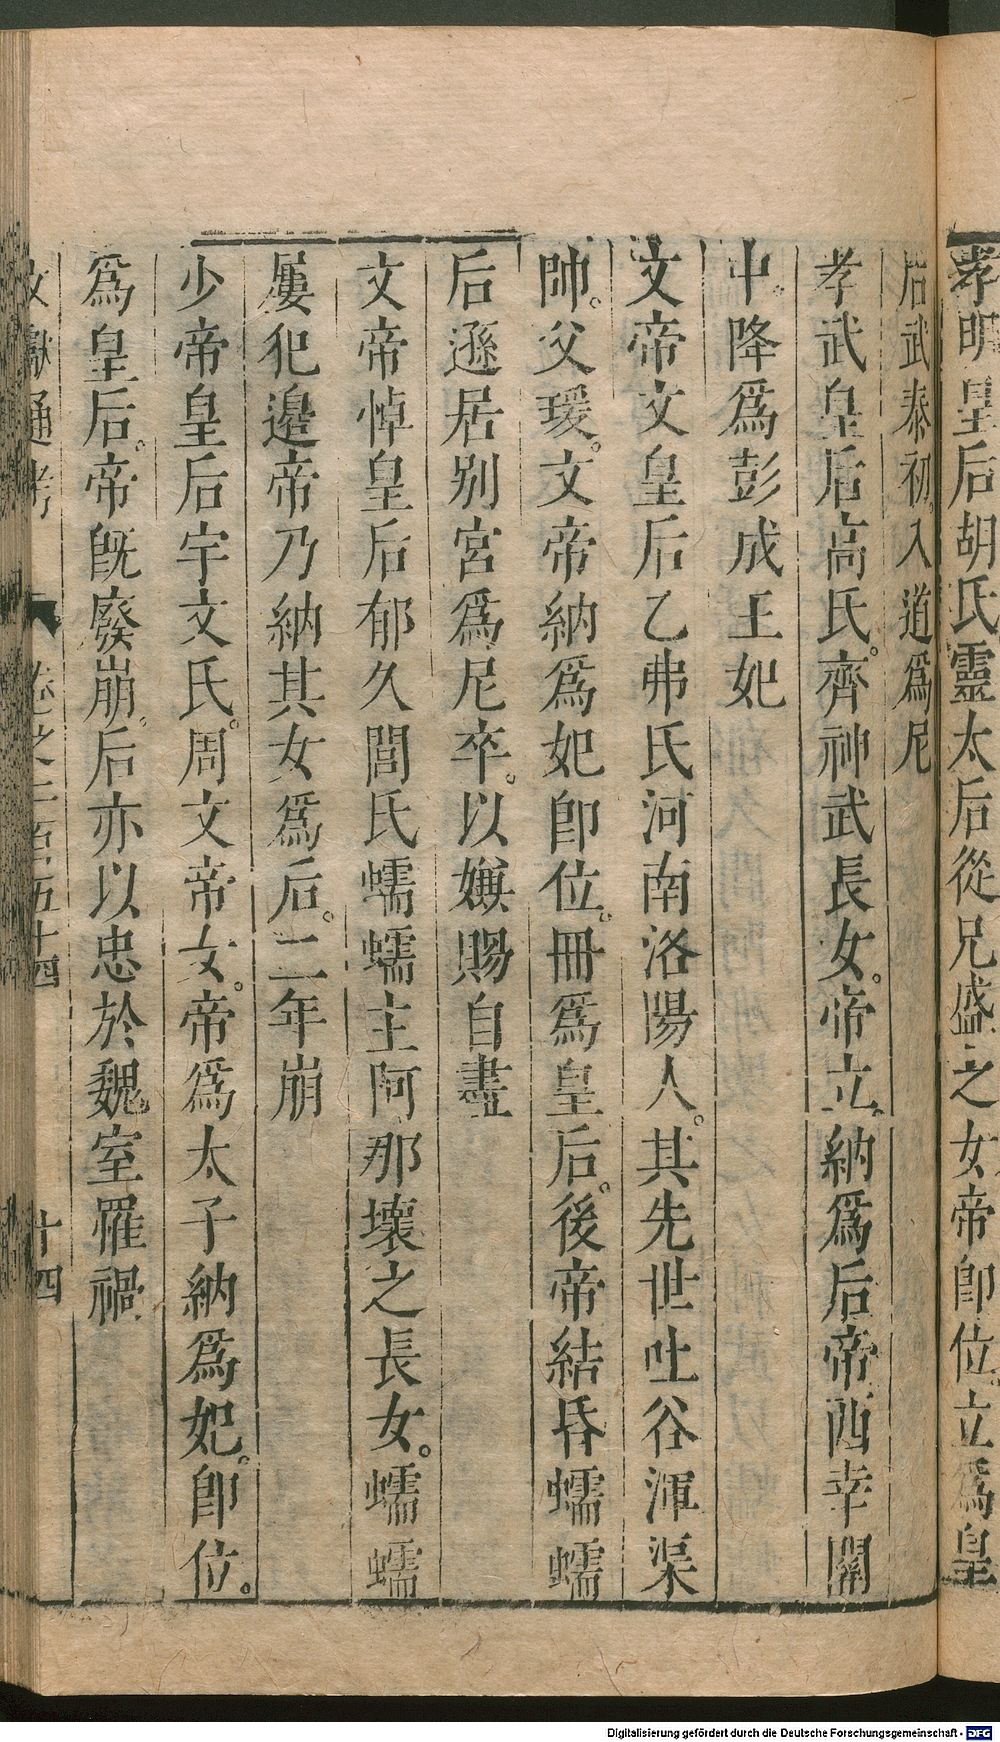 孝明皇后胡氏靈太后從兄盛之女帝卽位立爲皇
后武泰初入道爲尼
孝武皇后高氏齊神武長女帝立納爲后帝西幸關
中降爲彭成王妃
文帝文皇后乙弗氏河南洛陽人其先世吐谷渾渠
帥父瑗文帝納爲妃卽位冊爲皇后後帝結昏蠕蠕
后遜居别宮爲尼卒以嫌賜自盡
文帝悼皇后郁久閭氏蠕蠕主阿那壞之長女蠕蠕
屢犯邉帝乃納其女爲后二年崩
少帝皇后宇文氏周文帝女帝爲太子納爲妃卽位
爲皇后帝旣廢崩后亦以忠於魏室罹禍
文獻通考 卷之二百五十四 十四
Digitalisierung gefördert durch die Deutsche Forschungsgemeinschaft - DFG